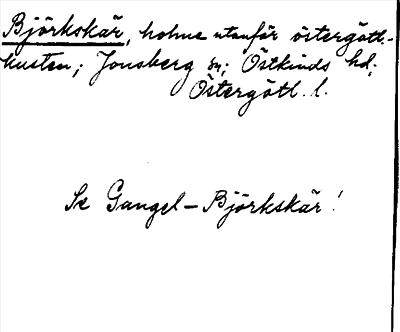 Björkskär, holme utanför östergötl.-
kusten; Jonsberg sn; Östkinds hd;
Östergötl. l.
Se Gangel-Björkskär!